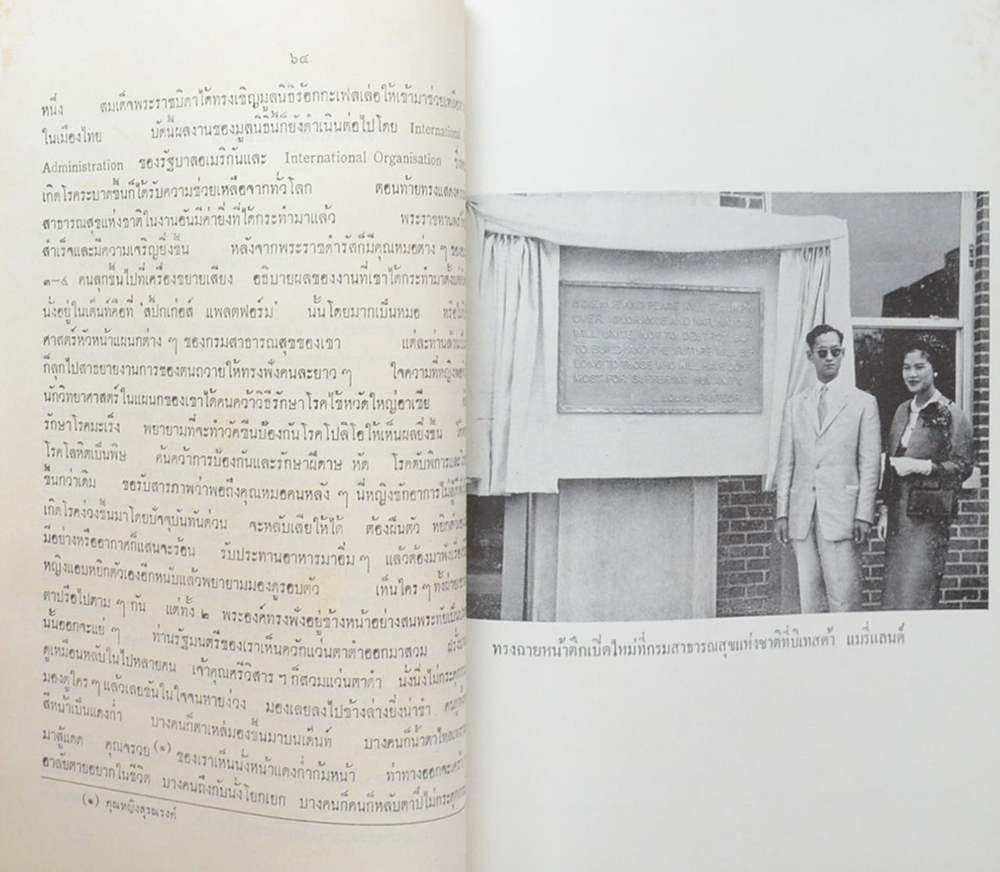 ๖๔
หนึ่ง สมเด็จพระราชบิดาได้ทรงเชิญมูลนิธิร้อกกะเฟลเล่อให้เข้ามาช่วยเหลือ
ในเมืองไทย บัดนี้ผลงานของมูลนิธินี้ก็ยังดำเนินต่อไปโดย International
Administration ของรัฐบาลอเมริกันและ International Organisation
เกิดโรคระบาดขึ้นก็ได้รับความช่วยเหลือจากทั่วโลก ตอนท้ายทรงแสดง
สาธารณสุขแห่งชาติในงานอันมีค่ายิ่งที่ได้กระทำมาแล้ว พระราชทานพร
สำเร็จและมีความเจริญยิ่งขึ้น หลังจากพระราชดำรัสก็มีคุณหมอต่าง ๆ
๓-๔ คนลุกขึ้นไปที่เครื่องขยายเสียง อธิบายผลของงานที่เขาได้กระทำมาตั้งแต่
นั่งอยู่ในเต็นท์คือที่ 'สปีกเก้อส์ แพลตฟอร์ม' นั้นโดยมากเป็นหมอ หรือ
ศาสตร์หัวหน้าแผนกต่าง ๆ ของกรมสาธารณสุขของเขา แต่ละท่านล้วน
ก็ลุกไปสาธยายงานการของตนถวายให้ทรงฟังคนละยาว ๆ ใจความที่หญิง
นักวิทยาศาสตร์ในแผนกของเขาได้คนคว้าวิธีรักษาโรคไข้หวัดใหญ่อาเซีย
รักษาโรคมะเร็ง พยายามที่จะทำวัคซีนป้องกันโรคโปลิโอให้เห็นผลยิ่งขึ้น
โรคโลหิตเป็นพิษ ค้นคว้าการป้องกันและรักษาฝีดาษ หัด โรคตับพิการและ
ขึ้นกว่าเดิม ขอรับสารภาพว่าพอถึงคุณหมอคนหลัง ๆ นี่หญิงชักอาการไม่
เกิดโรคง่วงขึ้นมาโดยปัจจุบันทันด่วน จะหลับเสียให้ได้ ต้องฝืนตัว หยิก
มีอย่างหรืออากาศก็แสนจะร้อน รับประทานอาหารมาอิ่ม ๆ แล้วต้องมาฟัง
หญิงแอบหยิกตัวเองอีกหนับแล้วพยายามมองดูรอบตัว เห็นใคร ๆ ทั้ง
ตาปรือไปตาม ๆ กัน แต่ทั้ง ๒ พระองค์ทรงฟังอยู่ข้างหน้าอย่างสนพระทัย
นั้นออกจะแย่ ๆ ท่านรัฐมนตรีของเราเห็นควักแว่นตาดำออกมาสวม
ดูเหมือนหลับในไปหลายคน เจ้าคุณศรีวิสาร ฯ ก็สวมแว่นตาดำ นั่งนิ่งไม่
มองดูใคร ๆ แล้วเลยขันในใจจนหายง่วง มองเลยลงไปข้างล่างยิ่งน่าขำ
สีหน้าเป็นแดงก่ำ บางคนก็ตาเหล่มองขึ้นมาบนเต็นท์ บางคนก็น้ำตาไหล
มาสู้แดด คุณจรวย (๑) ของเราเห็นนั่งหน้าแดงก่ำก้มหน้า ท่าทางออกจะ
อาลัยตายอยากในชีวิต บางคนถึงกับนั่งโยกเยก บางคนก็คนก็หลับตาปี๋ไม่
(๑) คุณหญิงสุรณรงค์
SCIENCE AND PEACE WILL TRIUMPH
OVER IGNORANCE AND WAR, NATIONS
WILL UNITE, NOT TO DESTROY, BUT
TO BUILD, AND THE FUTURE WILL BE
LONG TO THOSE WHO WILL HAVE DONE
MOST FOR SUFFERING HUMANITY.
LOUIS PASTEUR
ทรงฉายหน้าตึกเปิดใหม่ที่กรมสาธารณสุขแห่งชาติที่บิเทสด้า แมรี่แลนด์